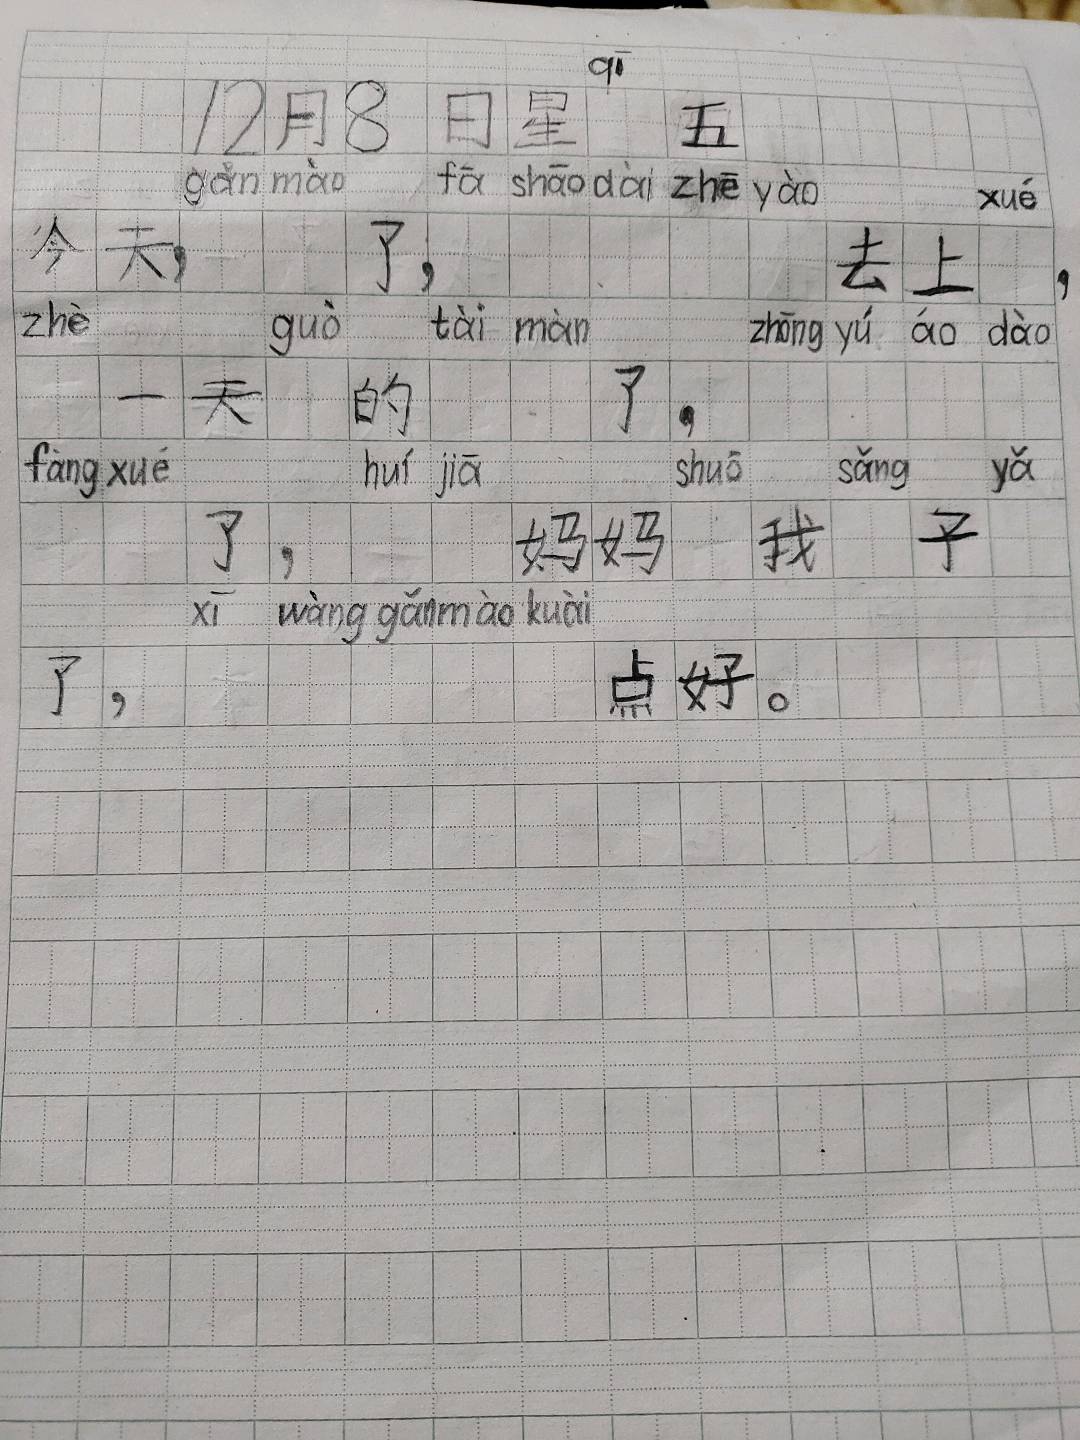 qī
12月8日星 五
gǎn mào fā shāo dài zhē yào xué
今天, 了, 去上 ,
zhè guò tài màn zhōng yú áo dào
一天 的 了,
fàng xué huí jiā shuō sǎng yǎ
了, 妈妈 我 子
xī wàng gǎn mào kuài
了, 点好。